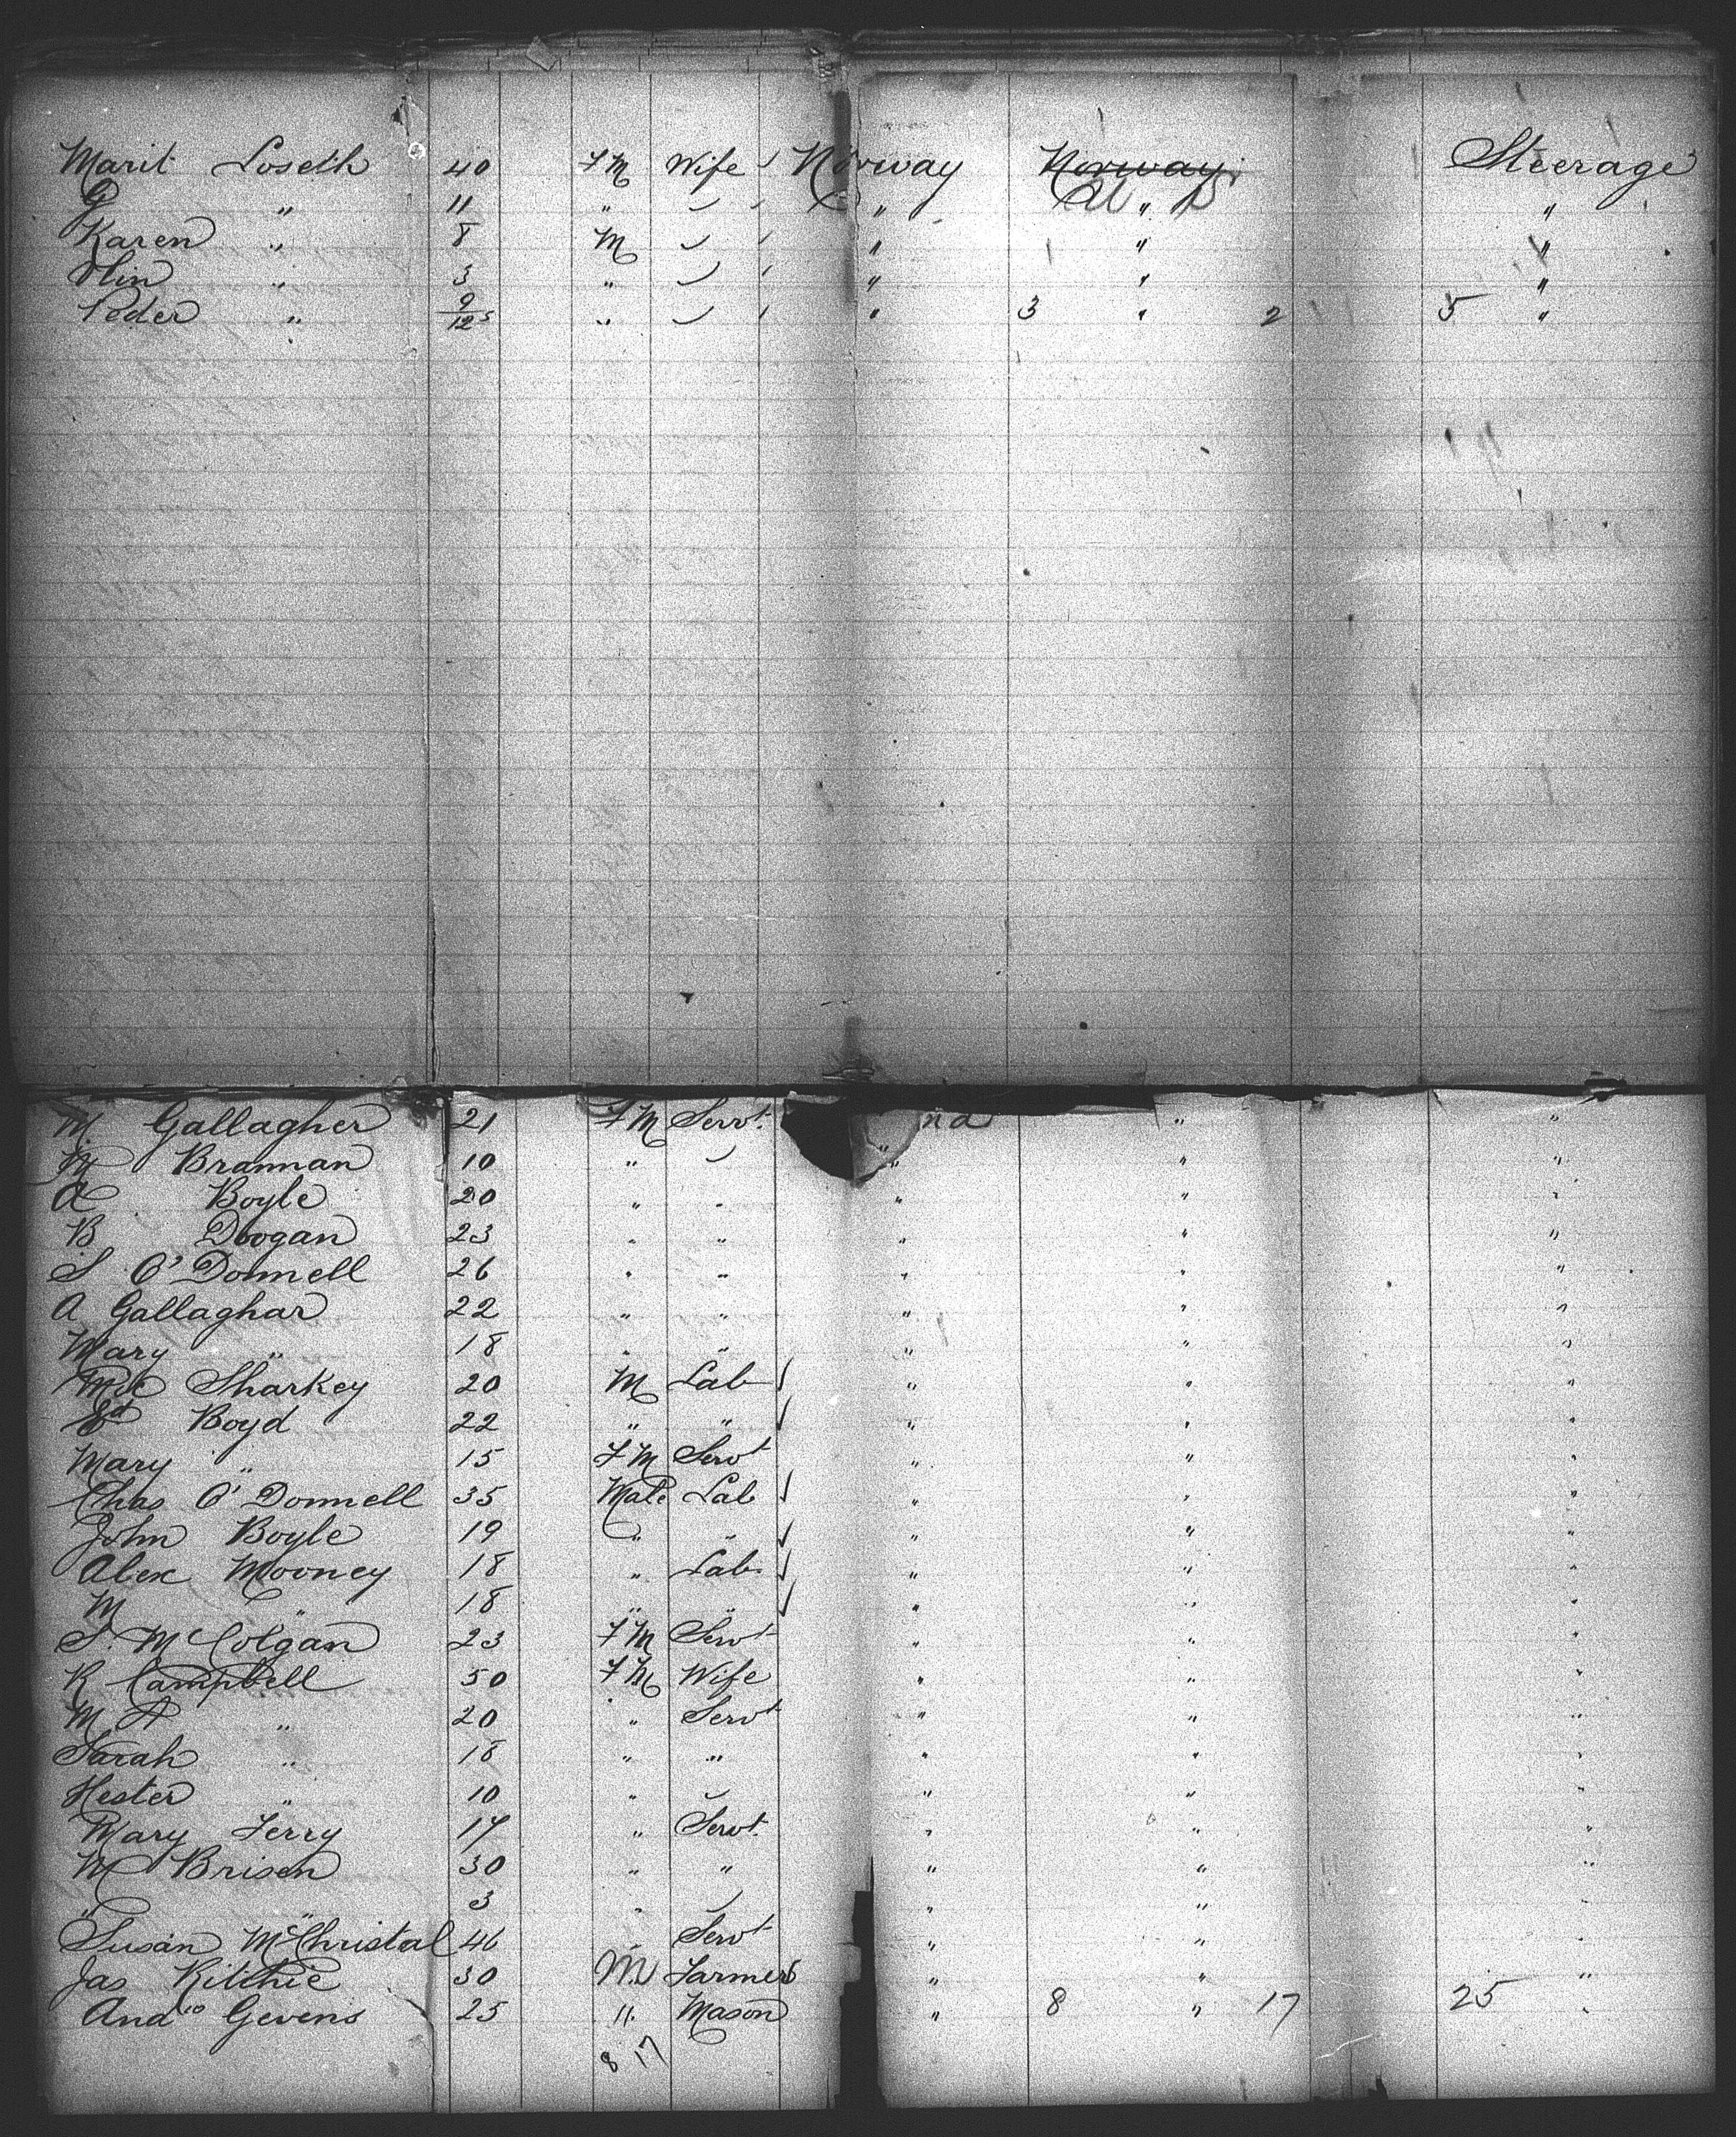 Marit Loseth 40 FM Wife Norway Norway Steerage
G " 11 " " U S " "
Karen " 8 M " " "
Olin " 3 " " " "
Peder " 9/12 " " 3 " 2 5 "
M Gallagher 21 FM Servt. nd " "
M Brannan 10 " " " "
A Boyle 20 " " " " "
B Doogan 23 " " " " "
S O'Donnell 26 " " " " "
A Gallaghar 22 " " " " "
Mary " 18 " " " " "
Mic Sharkey 20 M Lab " " "
Ed Boyd 22 " " " " "
Mary " 15 FM Servt " " "
Chas O'Donnell 35 Male Lab " " "
John Boyle 19 " " " " "
Alex Mooney 18 " Lab. " " "
M " 18 " " " " "
S. McColgan 23 FM Servt " " "
R Campbell 50 FM Wife " " "
M. A " 20 " Servt " " "
Sarah " 18 " " " " "
Hester " 10 " " " "
Mary Ferry 17 " Servt. " " "
M Brisen 30 " " " " "
" " 3 " " " "
Susan McChristal 46 " Servt " " "
Jas Ritchie 30 M Farmer " " "
And Gevens 25 " Mason " 8 " 17 25 "
8 17